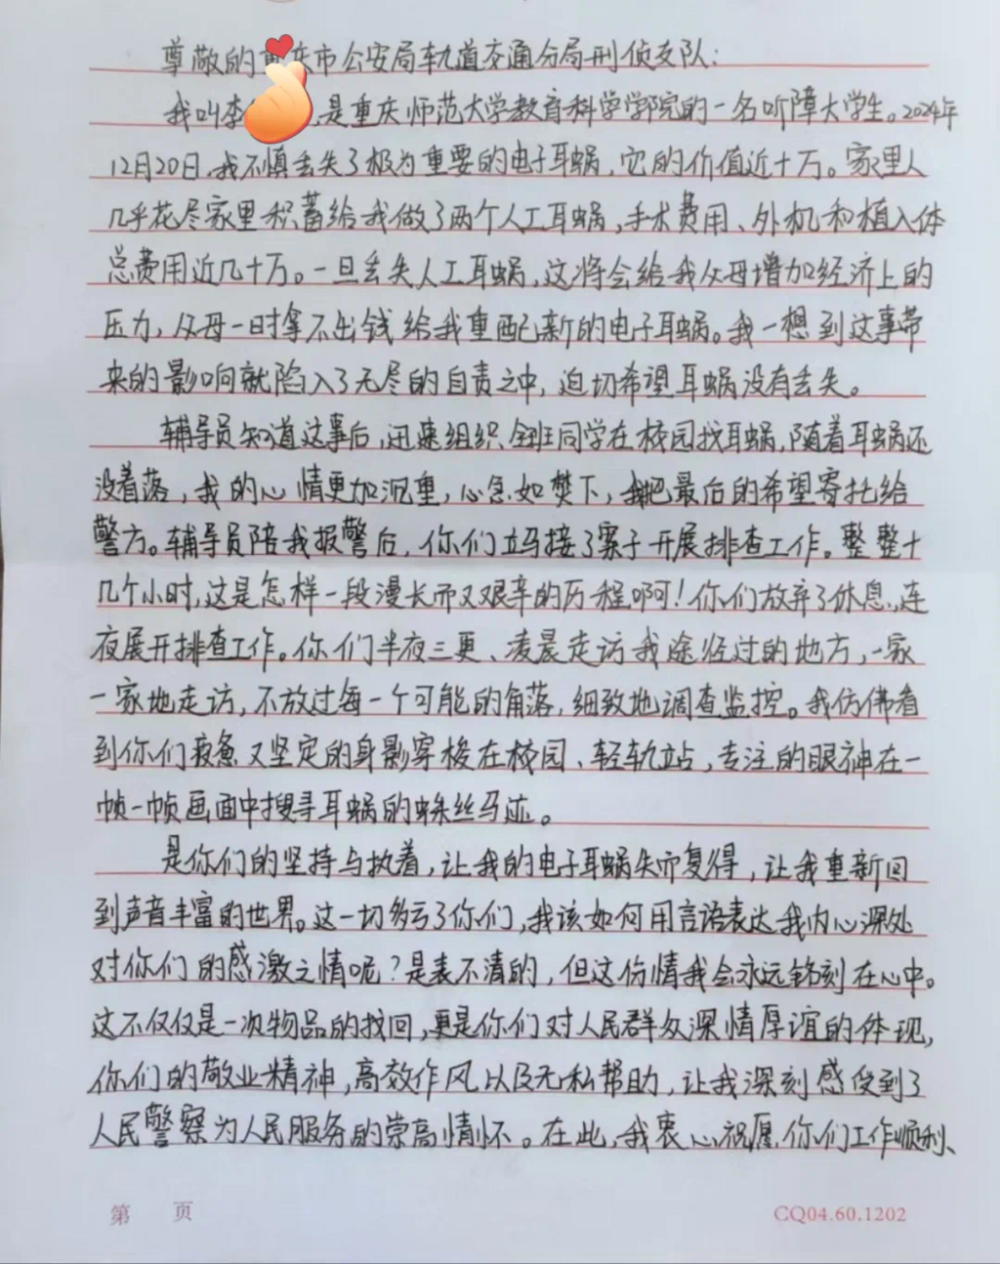 尊敬的重庆市公安局轨道交通分局刑侦支队:
我叫李 ,是重庆师范大学教育科学学院的一名听障大学生。2024年
12月20日,我不慎丢失了极为重要的电子耳蜗,它的价值近十万。家里人
几乎花尽家里积蓄给我做了两个人工耳蜗,手术费用、外机和植入体
总费用近几十万。一旦丢失人工耳蜗,这将会给我父母增加经济上的
压力,父母一时拿不出钱给我重配新的电子耳蜗。我一想到这事带
来的影响就陷入了无尽的自责之中,迫切希望耳蜗没有丢失。
辅导员知道这事后,迅速组织全班同学在校园找耳蜗,随着耳蜗还
没着落,我的心情更加沉重,心急如焚下,我把最后的希望寄托给
警方。辅导员陪我报警后,你们立马接了案子开展排查工作。整整十
几个小时,这是怎样一段漫长而又艰辛的历程啊!你们放弃了休息,连
夜展开排查工作。你们半夜三更、凌晨走访我途径过的地方,一家
一家地走访,不放过每一个可能的角落,细致地调查监控。我仿佛看
到你们疲惫又坚定的身影穿梭在校园、轻轨站,专注的眼神在一
帧一帧画面中搜寻耳蜗的蛛丝马迹。
是你们的坚持与执着,让我的电子耳蜗失而复得,让我重新回
到声音丰富的世界。这一切多亏了你们,我该如何用言语表达我内心深处
对你们的感激之情呢?是表不清的,但这份情我会永远铭刻在心中。
这不仅仅是一次物品的找回,更是你们对人民群众深情厚谊的体现,
你们的敬业精神,高效作风以及无私帮助,让我深刻感受到了
人民警察为人民服务的崇高情怀。在此,我衷心祝愿你们工作顺利、
第 页
CQ04.60.1202